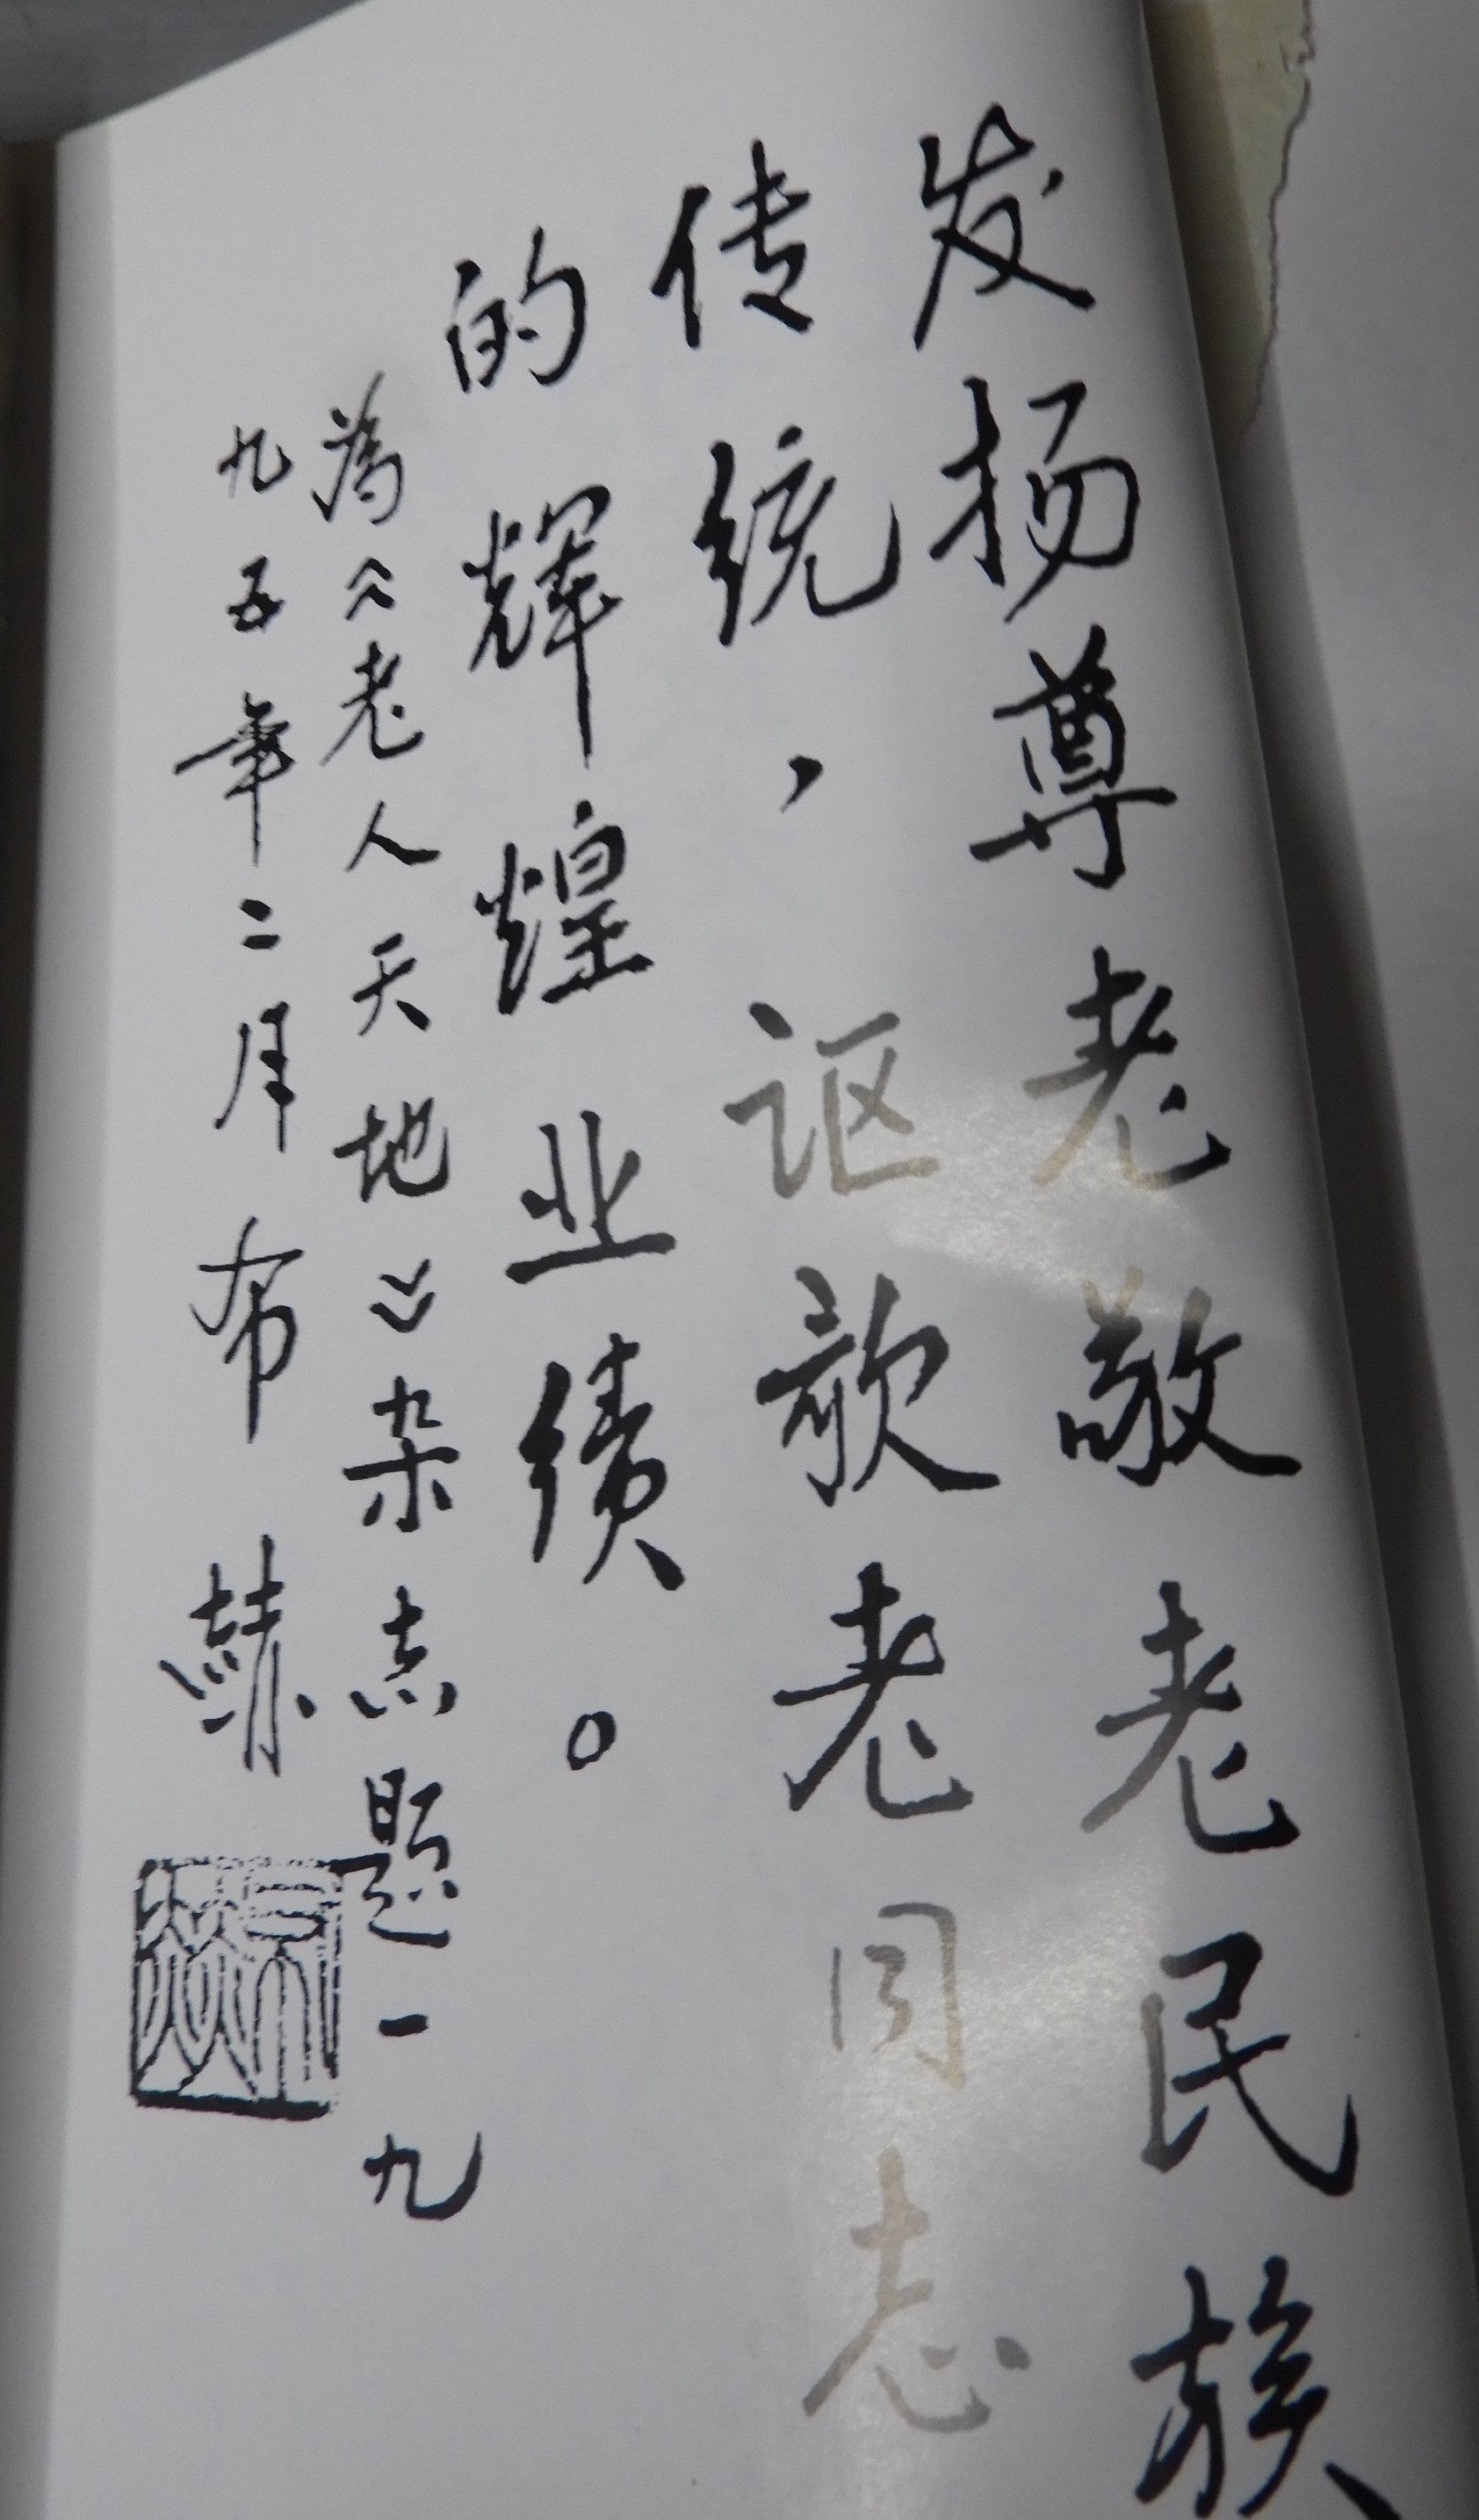 发扬尊老敬老民族
传统，讴歌老同志
的辉煌业绩。
為《老人天地》杂志题一九
九五年二月布赫